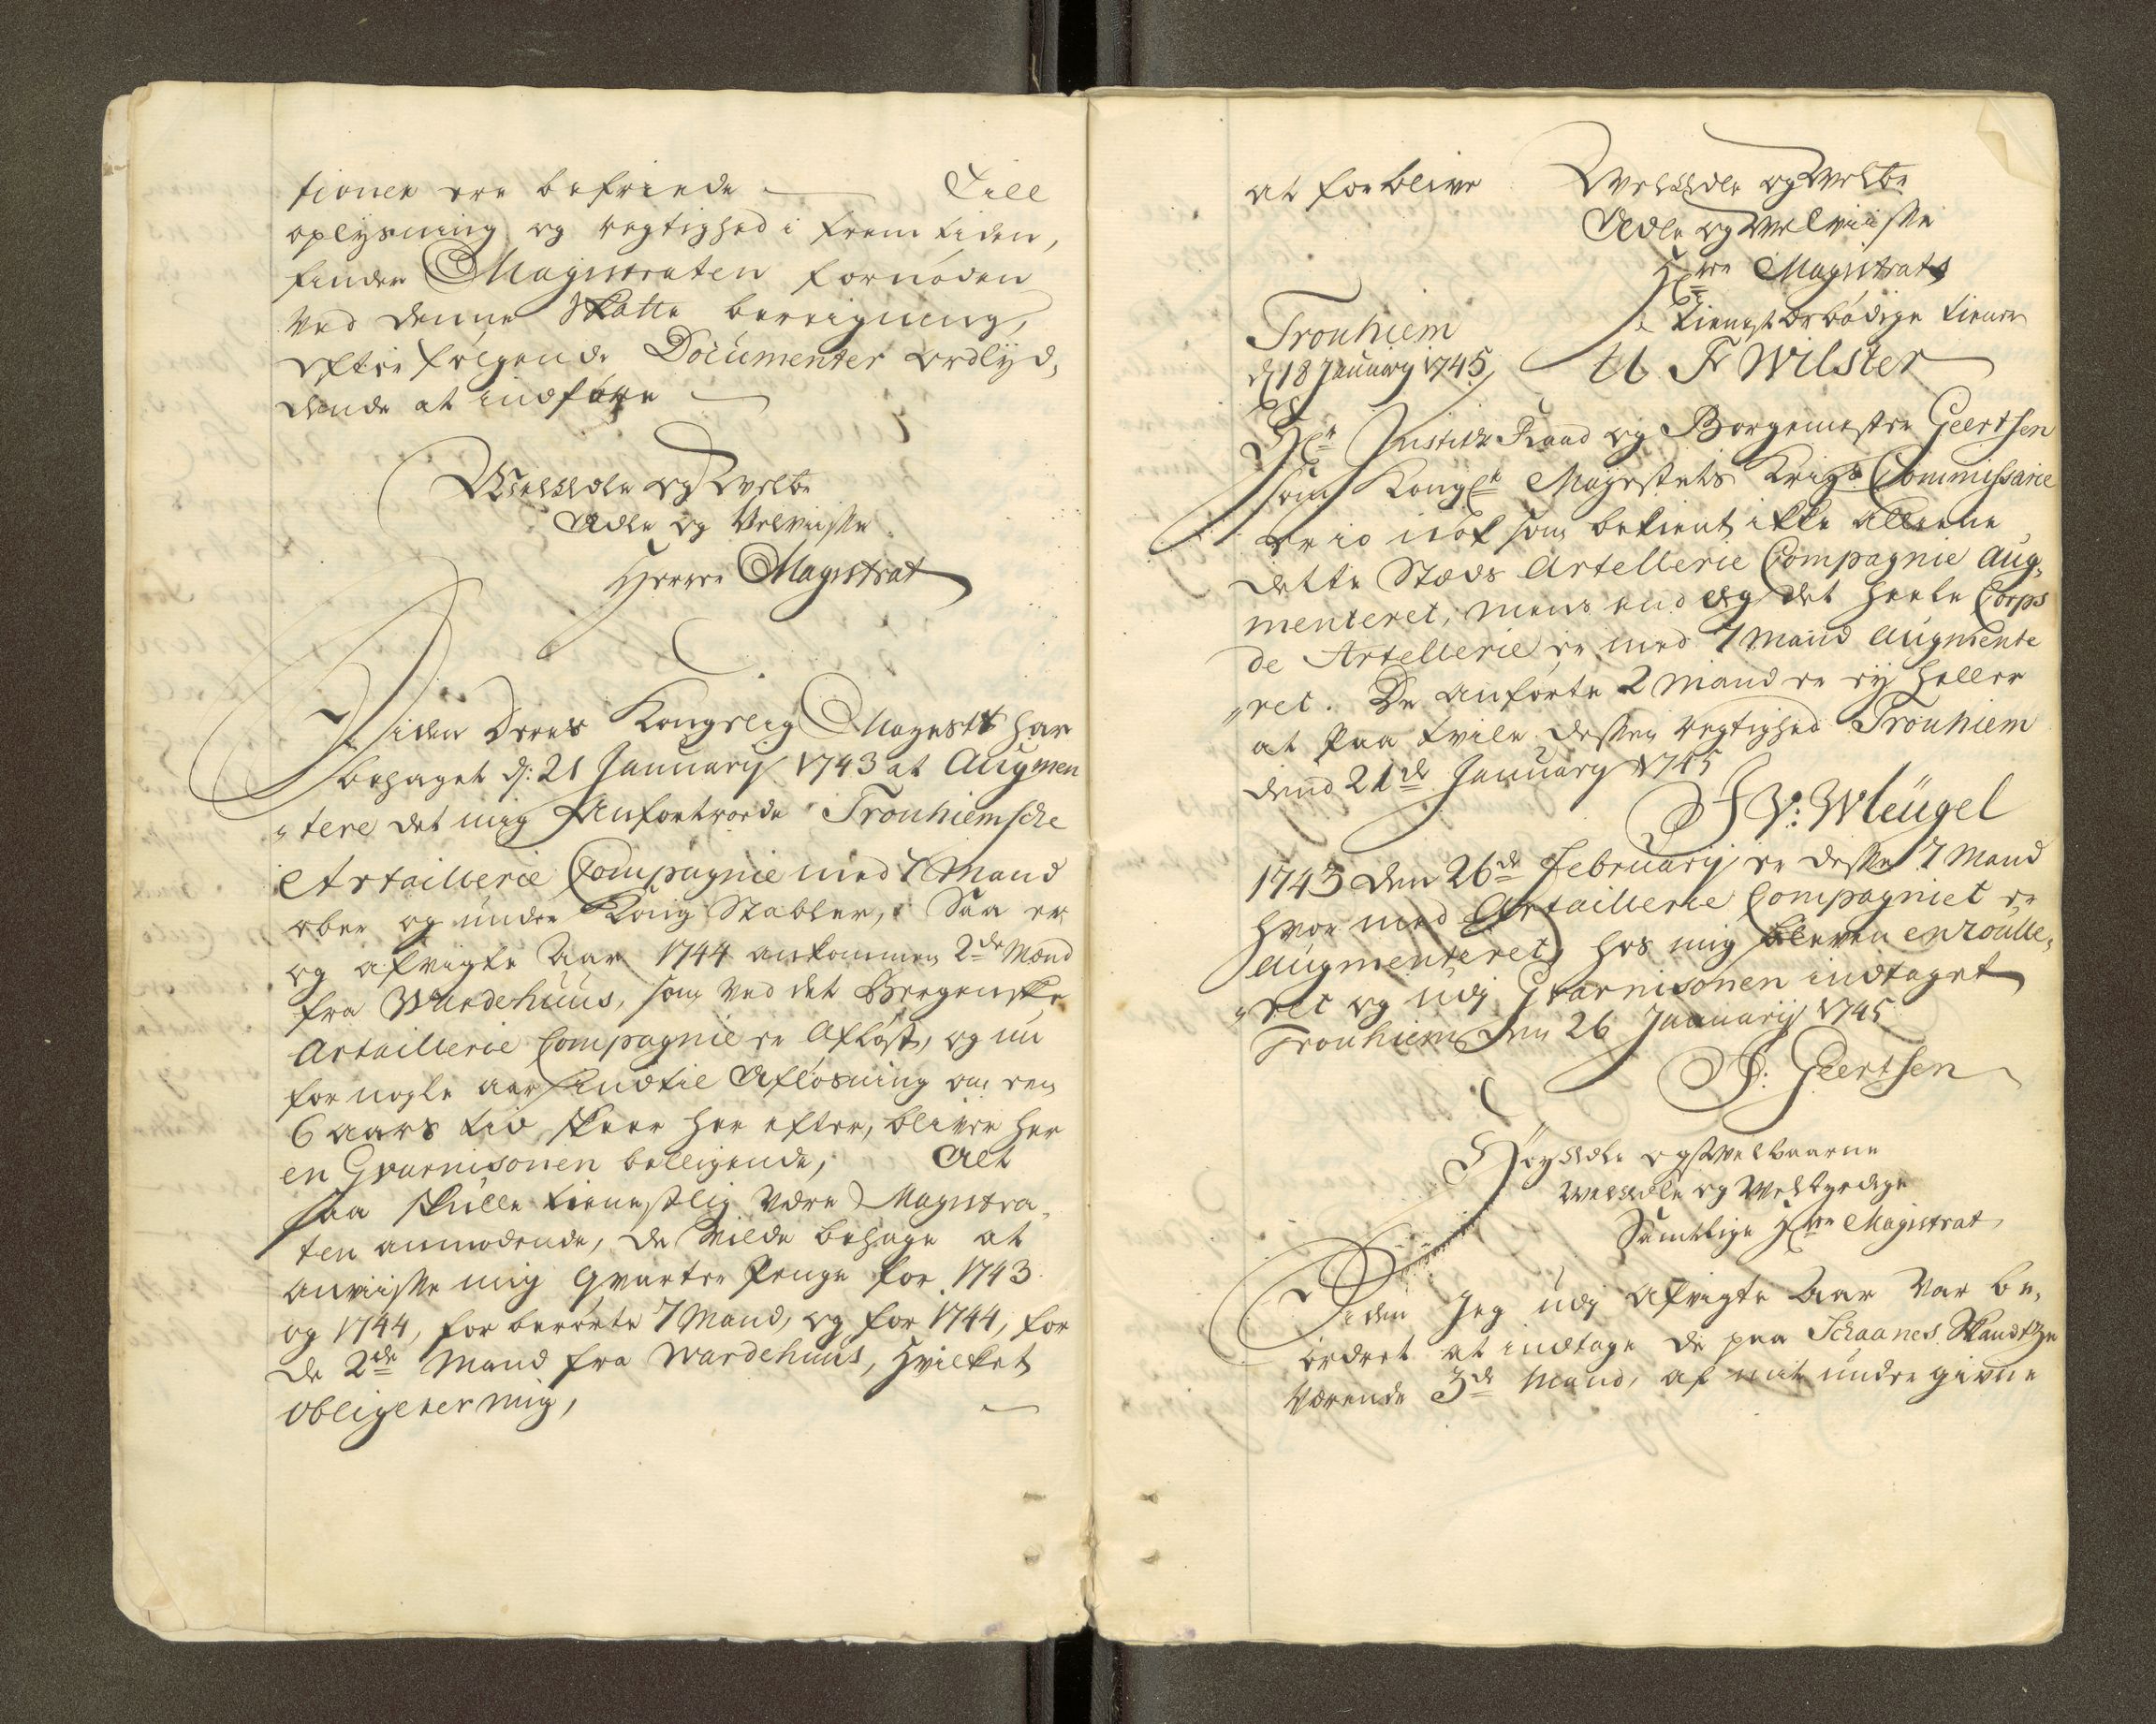 tionen ere befriede — Till
oplysning og rigtighed i fremtiden,
finder Magistraten fornøden
ved denne Skatte bereigning,
efterfølgende Documenter ordlyd,
dende at indføre —
WelEdle og Velbr
Ædle og Velviiste
Herrer Magistrat
Siden Deres Kongelig Mayestt har
behaget d: 21 Januarij 1743 at Augmen
„tere det mig Anfortroede Tronhiemsche
Artaillerie Compagnie med 7 Mand
ober og under Konstabler, Saa er
og afvigte Aar 1744 ankommen 2de Mænd
fra Wardehuus, som ved det Bergenske
Artaillerie Compagnie er Afløst, og nu
for nogle aar indtil Afløsning om den
6 aars tid skeer her efter, bliver her
en Gvarnisonen beliggende, Alt
saa skulle tienestlig være Magistra,
ten anmodende, de vilde behage at
anviisse mig Qvarter Penge for 1743
og 1744, for berørte 7 Mand, og for 1744, for
de 2de Mand fra Wardehuus, Hvilket
obligerer mig,
at forblive WelEdle og Velbr
Ædle og Velviiste
Hrrr Magistrats
tienstærbødige tiener
Tronhiem
d 18 Januarij 1745
U Fr Wilster
Hr Justitz Raad og Borgemester Geertsen
som Kongl Mayestets Krigs Commissarie
er io nok som bekient, ikke alleene
dette Stæds Artellerie Compagnie Aug,
menteret, mens end og det heele Corps
de Artellerie er med 7 Mand Augmente
„ret. De anførte 2 Mand er ey heller
at paa tvile dessen rigtighed Tronhiem
dend 21de January 1745
F V: Wleugel
1743 den 26de Februarij er disse 7 Mand
hvor med Artaillerie Compagniet er
Augmenteret, hos mig bleven enroulle,
„ret og udj Gvarnisonen indtaget
Tronhiem den 26 Januarij 1745
Geertsen
HøyEdle og Velbaarne
WelEdle og Velbyrdige
Samtlige Hrr Magistrat,
Siden Jeg udj Afvigte Aar var be,
ordret at indtage de paa Schaanes Skandtze
værende 3de Mand, af mit undergivne